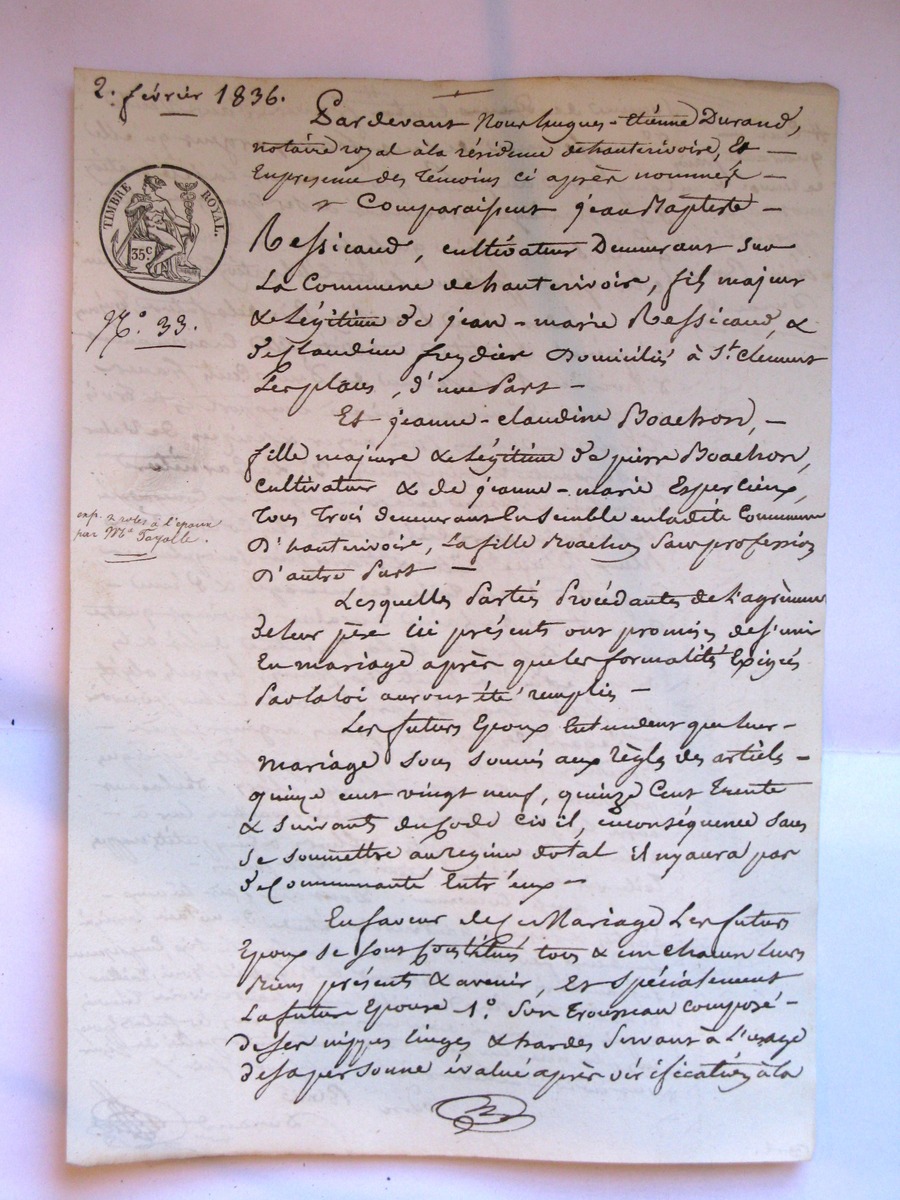 2. février 1836.
Pardevant Nous hugues-étienne Durand,
notaire royal à la résidence de hauterivoire, Et
En presence des témoins ci après nommés
Comparaissent jean Baptiste
Ressicaud, cultivateur Demeurant sur
La Commune de hauterivoire, fils majeur
& Légitime de jean-marie Ressicaud, &
de Claudine freydière Domiciliés à St. Clément
Les places, d'une Part
Et jeanne-claudine Boachon,
fille majeure & Légitime de pierre Boachon,
Cultivateur & de jeanne-marie Espercieux,
Tous Trois demeurant Ensemble en ladite Commune
D'hauterivoire, La fille Boachon Sans profession
D'autre Part
Lesquelles Parties Procédantes de l'agrément
de leur père ici présents ont promis de s'unir
En mariage après que les formalités Exigées
Par la loi auront été remplies
Les futurs Epoux Entendent que leur
mariage sous soumis aux règles des articles
quinze cent vingt neuf, quinze Cent Trente
& suivants du Code Civil, en conséquence sans
se soumettre au regime dotal il n'y aura pas
de Communauté Entr'eux
En faveur de ce Mariage Les futurs
Epoux se sont Constitués tous & un chacun Leurs
Biens présents & avenir, Et Spécialement
La future Epouse 1.° Son Trousseau Composé
de ses nippes linges & hardes Servant à l'usage
de sa personne évalué après vérification à la
TIMBRE ROYAL.
35c
N.° 33.
exp. 2 roles à l'époux
par Me Fayolle.